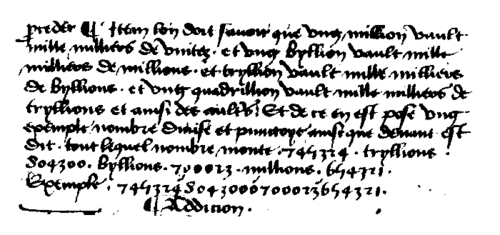 preder ¶ Item lon doit savoir que ung million vault
mille milliers de unitez · et ung byllion vault mille
milliers de millions · et tryllion vault mille milliers
de byllions · et ung quadrillion vault mille milliers de
tryllions et ainsi des aultres Et de ce en est pose ung
exemple nombre divise et punctoye ainsi que devant est
dit · tout lequel nombre monte · 745324 · tryllions ·
804300 · byllions · 700023 · millions · 654321 ·
Exemple · 7453248043000700023654321 ·
¶ Addicion ·